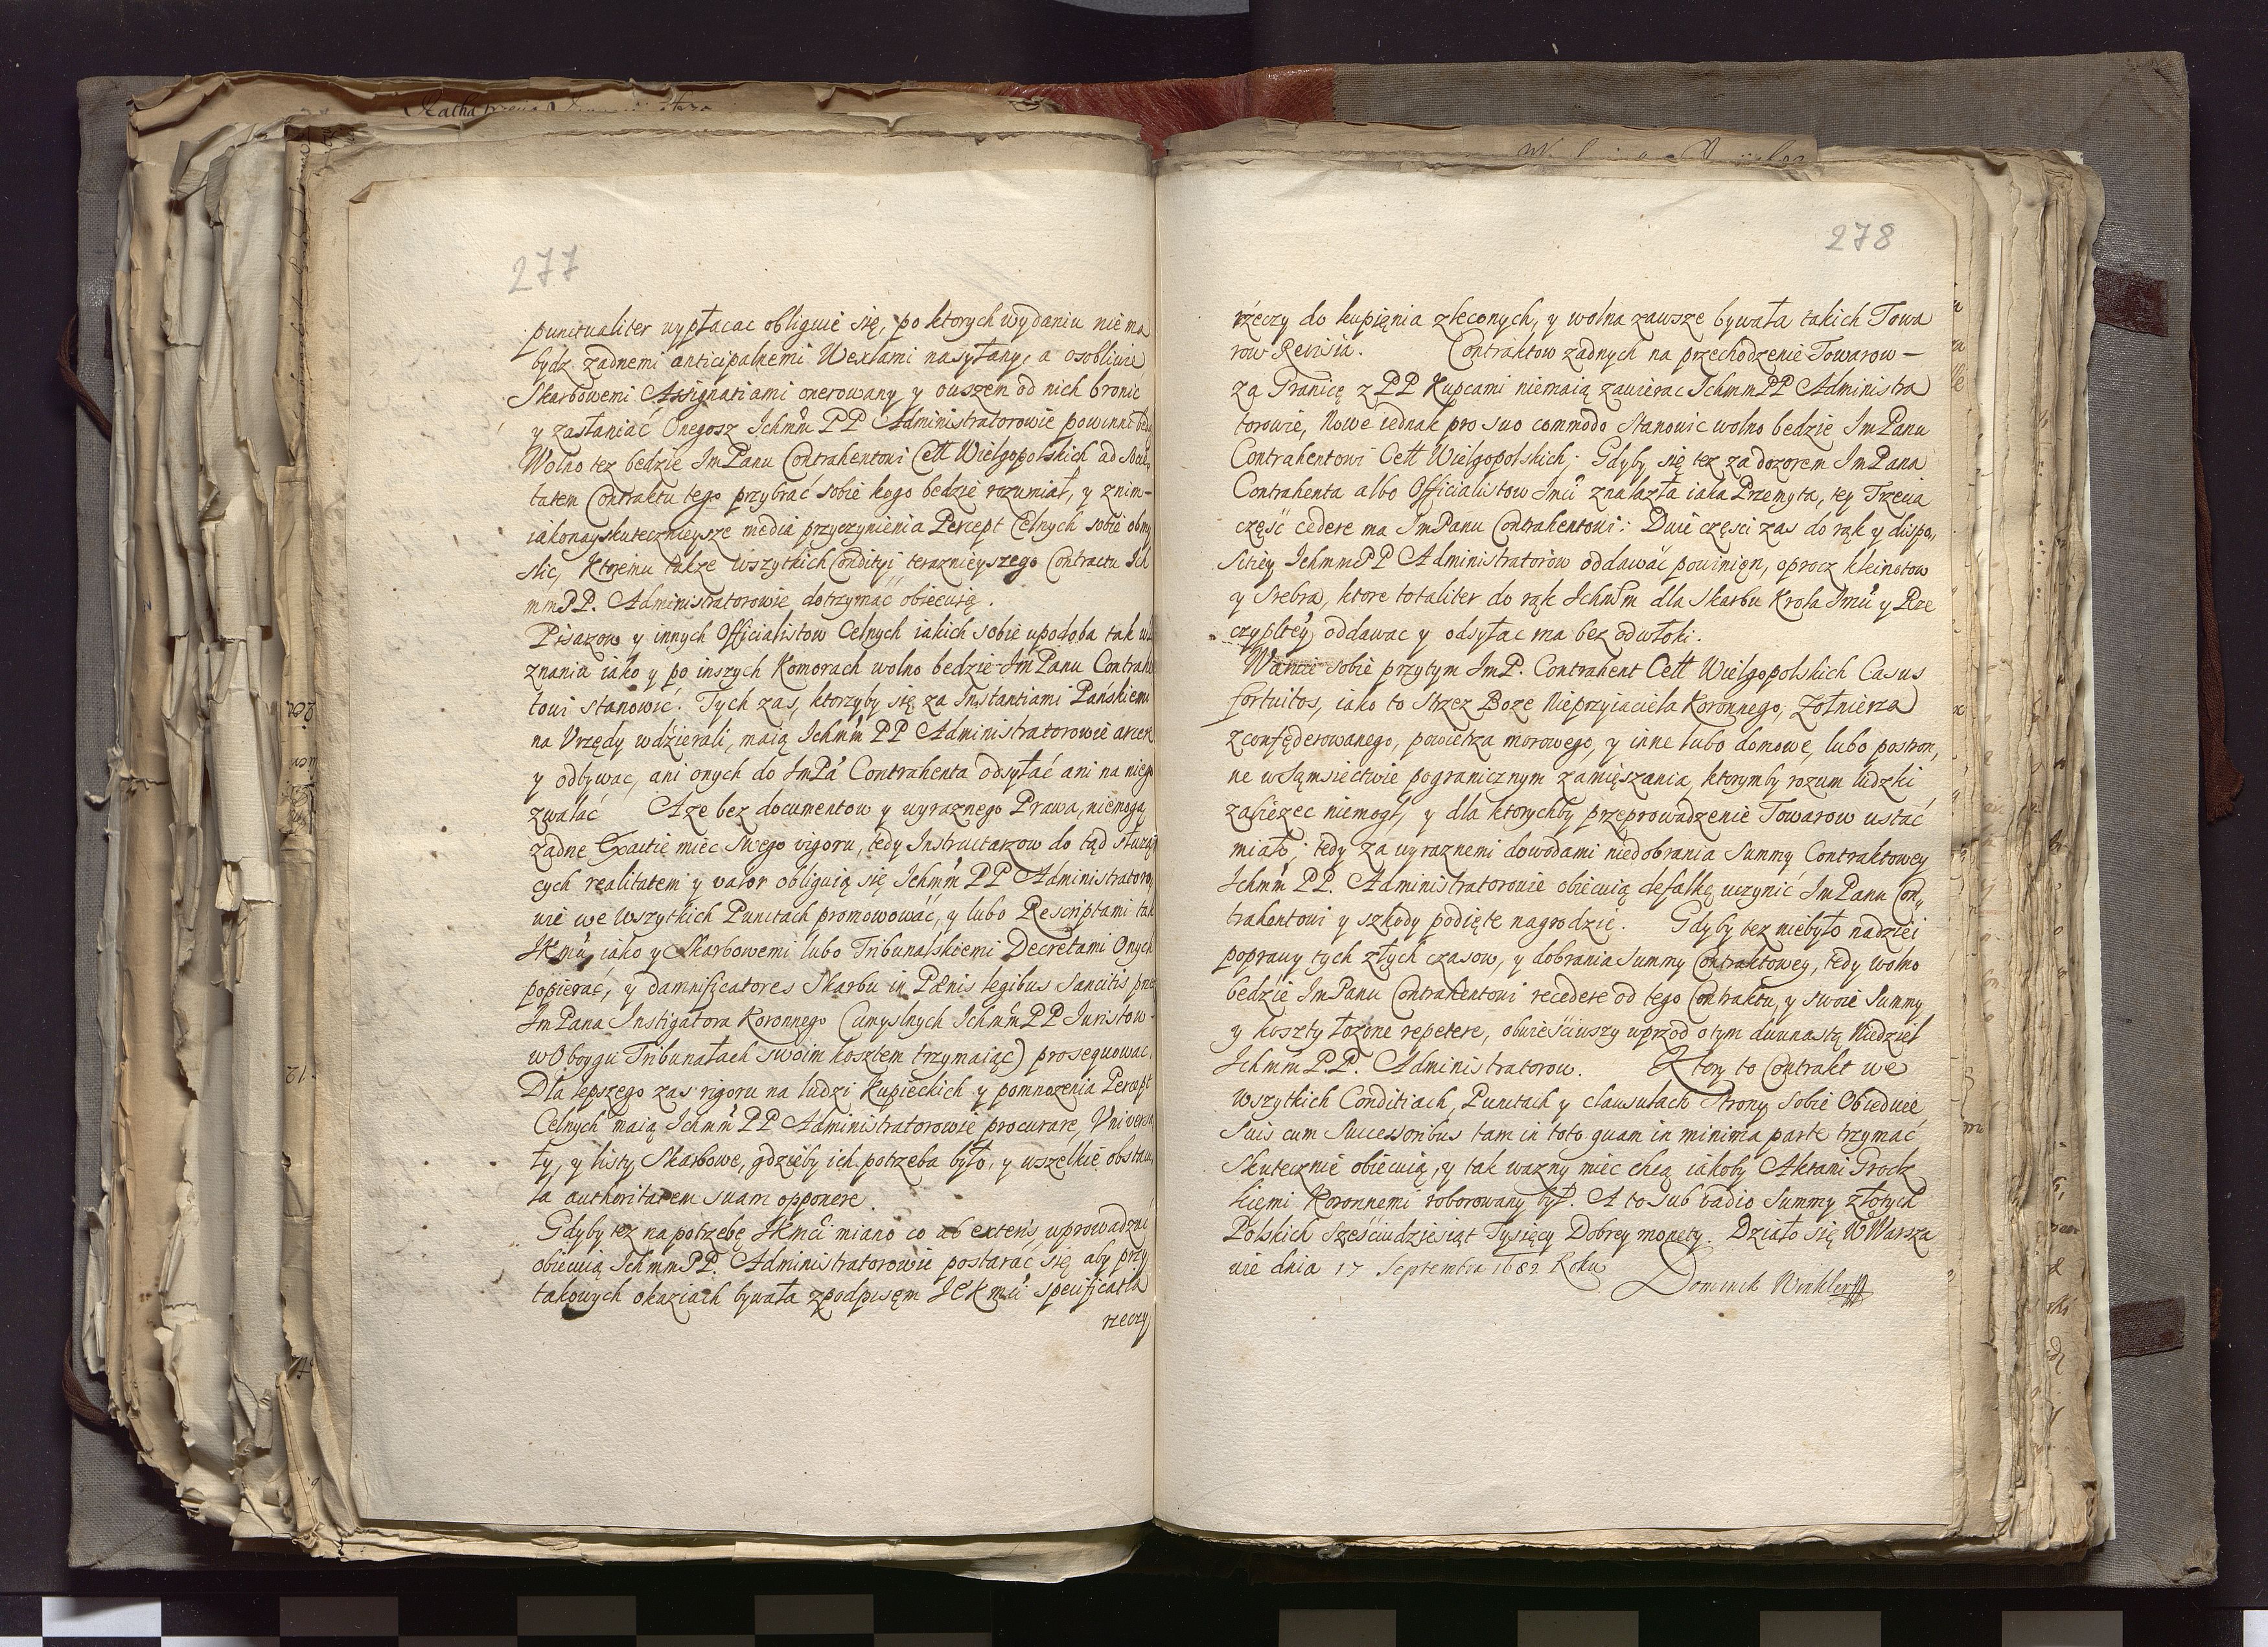 277
punctualiter wypłacac obliguie się, po ktorych wydaniu niema
bydz zadnemi anticipalnemi Wexlami nasyłany, a osobliwie
Skarbowemi Assignatiami onerowany y owszem od nich bronic
y zasłaniać Onegosz Ichmm PP Administratorowie powinni będą
Wolno tez bedzie ImPanu Contrahentowi Cełł Wielgopolskich ad Socie,
tatem Contraktu tego przybrać sobie kogo bedzie rozumiał, y znim-
iakonayskutecznieysze media przyczynienia Percept Celnych sobie obmy
slic, Ktoremu takze wszytkich Condityi teraznieyszego Contractu Ich
mmPP. Administratorowie dotrzymać obiecuią.
Pisarzow y innych Officialistow Celnych iakich sobie upodoba tak w
znania iako y po inszych Komorach wolno bedzie ImPanu Contrahe
towi stanowić. Tych zas, ktorzyby się za Instantiami Pańskiemi
na Vrzędy wdzierali, maią Ichmm PP Administratorowie arcere
y odbywac, ani onych do ImPa Contrahenta odsyłać ani na niego
zwalać Aze bez documentow y wyraznego Prawa, niemogą
zadne Exactie miec swego vigoru, tedy Instructarzow do tąd służą
cych realitatem y valor obliguią się Ichmm PP Administratoro,
wie we wszytkich Punctach promowować, y lubo Rescriptami tak
IKmci iako y Skarbowemi lubo Tribunalskiemi Decretami Onych
popierać, y damnificatores Skarbu in Pænis legibus sancitis prze
ImPana Instigatora Koronnego (umyslnych IchmmPP Iuristow-
wOboygu Tribunałach swoim kosztem trzymaiąc) prosequowac.
Dla lepszego zas rigoru na ludzi Kupieckich y pomnozenia Percept
Celnych maią Ichmm PP Administratorowie procurare, Vniversa
ły, y listy Skarbowe, gdzieby ich potrzeba było, y wszelkie obstacu,
la authoritatem suam opponere.
Gdyby tez na potrzebę IKmci miano co ab exteris wprowadzać
obiecuią IchmmPP. Administratorowie postarać się, aby przy
takowych okaziach bywała zpodpisem IEKmci specificatia
rzeczy
278
rzeczy do kupięnia zleconych, y wolna zawsze bywała takich Towa
row Revisia. Contraktow zadnych na przechodzenie Towarow —
zą Granicę z PP Kupcami niemaią zawierac IchmmPP Administra
torowie, Nowe iednak pro suo commodo Stanowic wolno bedzie ImPanu
Contrahentowi Cełł Wielgopolskich; Gdyby się tez za dozorem ImPana
Contrahenta albo Officialistow Imci znalazła iaka Przemyta, tey Trzecia
część cedere ma ImPanu Contrahentowi: Dwie częsci zas do rąk y dispo,
sitiey IchmmPP Administratorow oddawać powinięn, oprocz kleinotow
y Srebra, ktore totaliter do rąk Ichmm dla Skarbu Krola Imci y Rze
czyplitey oddawac y odsyłac ma bez odwłoki.
Waruie sobie przytym ImP. Contrahent Cełł Wielgopolskich Casus
fortuitos, iako to Strzez Boze Nieprzyiaciela Koronnego, Zołnierza
zconfęderowanego, powietrza morowego, y inne lubo domowe, lubo postron,
ne wSąmsiectwie pogranicznym zamięszania, ktorymby rozum ludzki
zabiezec niemogł, y dla ktorychby przeprowadzenie Towarow ustać
miało; tedy za wyraznemi dowodami niedobrania Summy Contraktowey
Ichmm PP. Administratorowie obiecuią defalkę uczynić ImPanu Con,
trahentowi y szkody podięte nagrodzic. Gdyby tez niebyło nadziei
poprawy tych złych czasow, y dobrania Summy Contraktowey, tedy wolno
będzie ImPanu Contrahentowi recedere od tego Contraktu, y swoie Summy
y koszty łożone repetere, obwieściwszy wprzod o tym dwunastą Niedziel
Ichmm P.P. Administratorow. Ktory to Contrakt we
wszytkich Conditiach, Punctach y clausulach Strony sobie Obiedwie
suis cum Successoribus tam in toto quam in minima parte trzymać
Skutecznie obiecuią, y tak wazny miec chcą iakoby Aktami Grodz
kięmi Koronnemi roborowany był. A to sub vadio Summy złotych
Polskich sześciudziesiąt Tysięcy Dobrey monety. Działo się WWarsza
wie dnia 17 Septembra 1682 Roku
Dominik Winkler